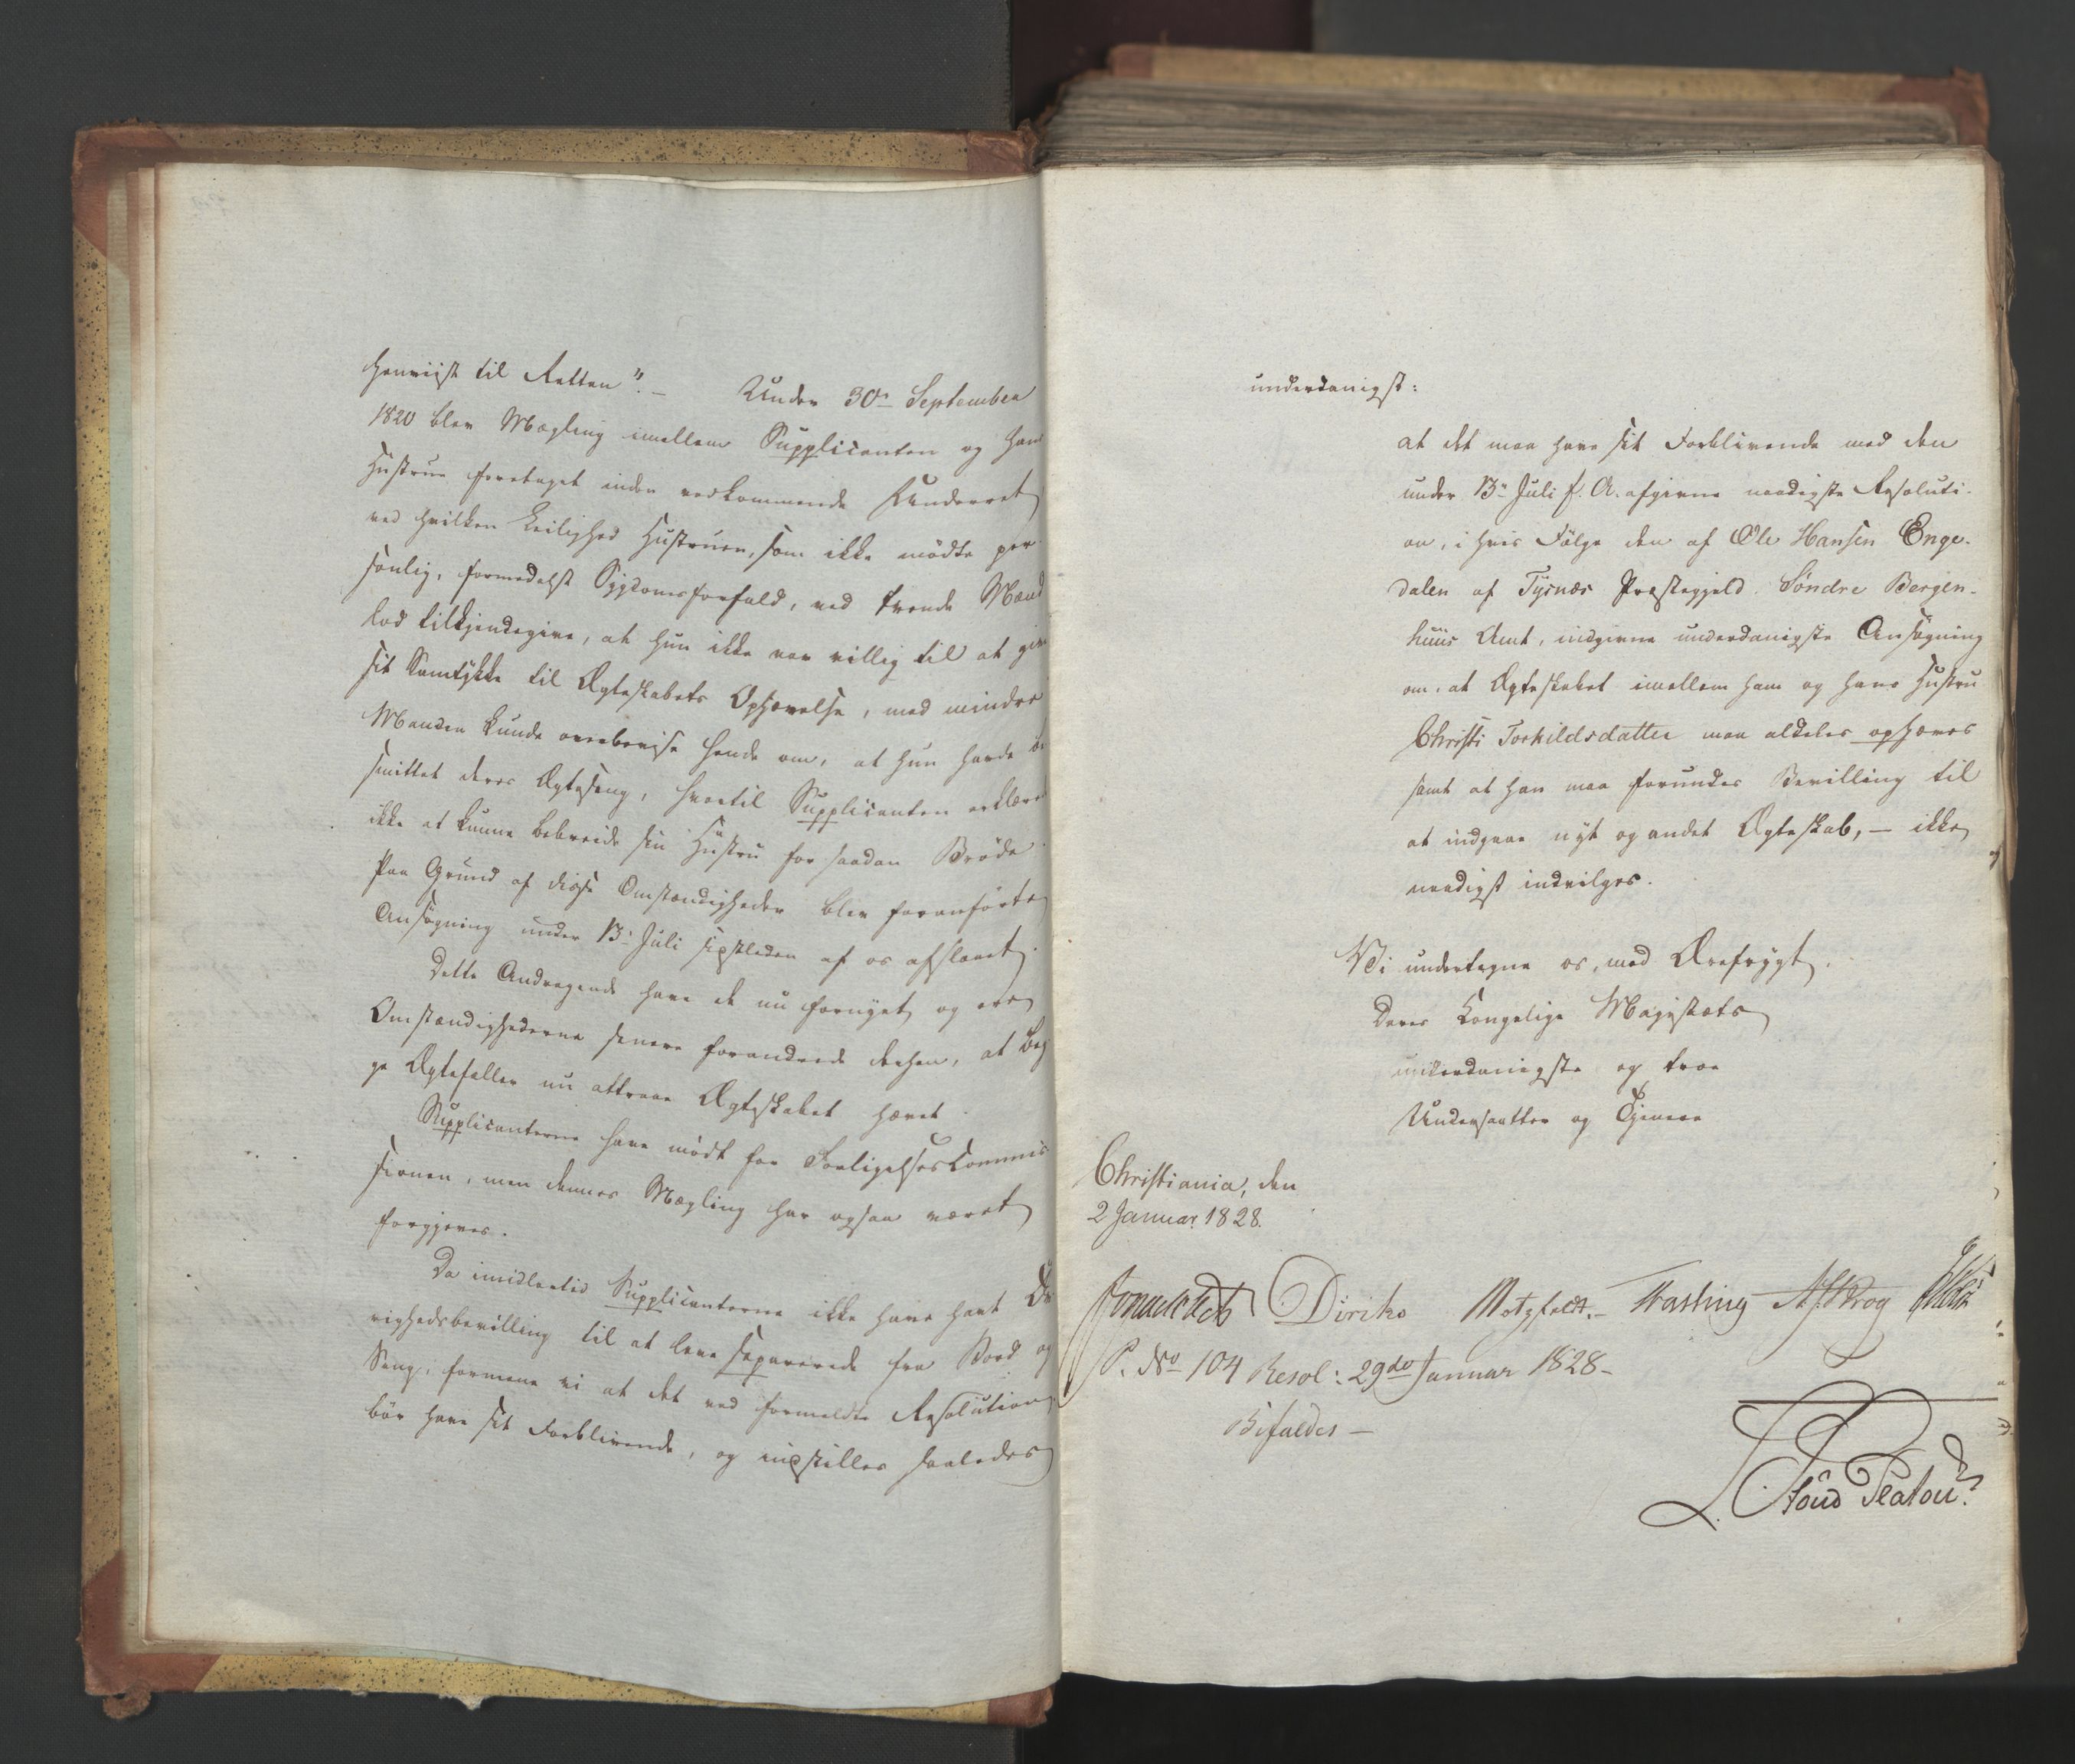 henviist til Retten". — Under 30te September
1820 blev Mægling imellem Supplicanten og hans
Hustrue foretaget inden vedkommende Underret
ved hvilken Leilighed Hustruen, som ikke mödte per-
sonlig, formedelst Sygdomsforfald, ved tvende Mænd
lod tilkjendegive, at hun ikke var villig til at give
sit Samtykke til Ægteskabets Ophævelse, med mindre
Manden kunde overbevise hende om, at hun havde be-
smittet deres Ægteseng, hvortil Supplicanten erklærede
ikke at kunne bebreide sin Hustru for saadan Bröde.
Paa Grund af disse Omstændigheder blev foranförte
Ansögning under 13de Juli sidstleden af os afslaaet.
Dette Andragende have de nu fornyet og ere
Omstændighederne senere forandrede derhen, at beg-
ge Ægtefæller nu attraae Ægteskabet hævet.
Supplicanterne have mödt for Forligelses Commis-
sionen, men dennes Mægling har ogsaa været
forgjeves.
Da imidlertid Supplicanterne ikke have havt Öv-
righedsbevilling til at leve separerede fra Bord og
Seng, formene vi at det ved formeldte Resolution
bör have sit Forblivende, og indstilles saaledes
underdanigst:
at det maa have sit Forblivende med den
under 13de Juli f. A. afgivne naadigste Resoluti-
on, i hvis Fölge den af Ole Hansen Enge-
dalen af Tysnæs Præstegjeld Söndre Bergen-
huus Amt, indgivne underdanigste Ansögning
om, at Ægteskabet imellem ham og hans Hustru
Christi Torkildsdatter maa aldeles ophæves
samt at han maa forundes Bevilling til
at indgaae nyt og andet Ægteskab, — ikke
naadigst indvilges.
Vi undertegne os, med Ærefrygt,
Deres Kongelige Majestæts
underdanigste og troe
Undersaatter og Tjenere
Christiania, den
2 Januar 1828.
Diriks Motzfeldt. — Fasting Krog
P. No 104 Resol: 29de Januar 1828 —
Bifaldes —
Stoud Platou